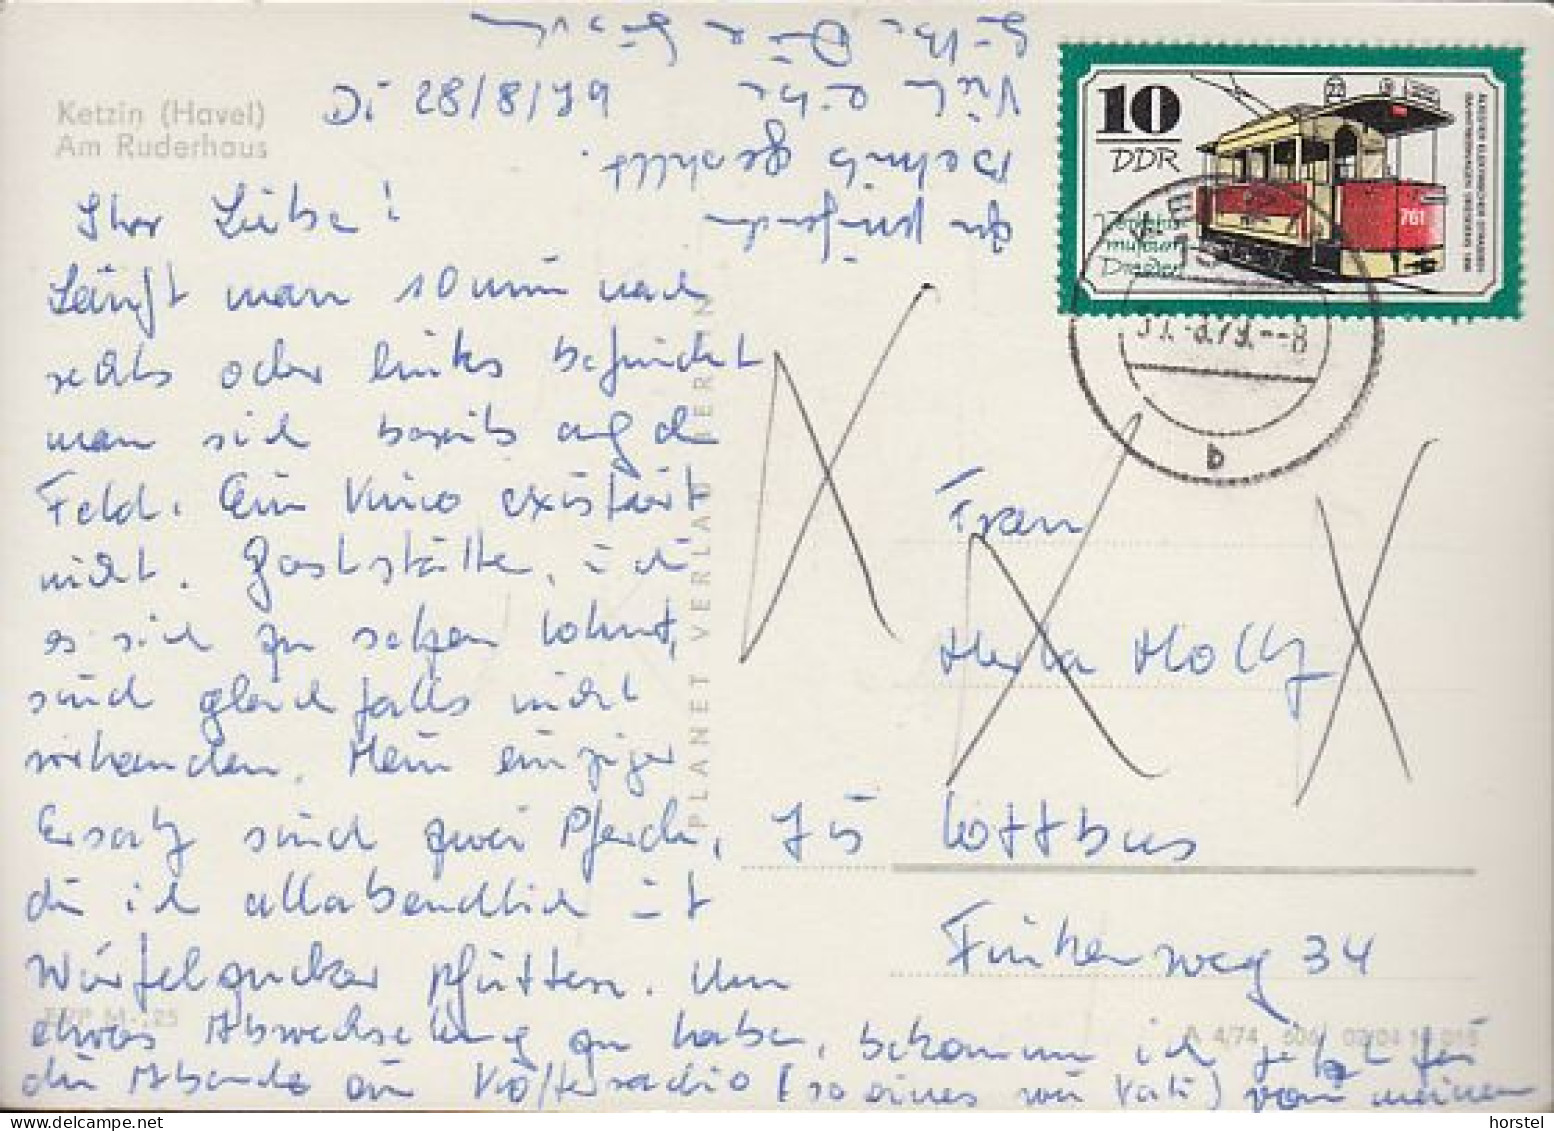 Ketzin (Havel)
Am Ruderhaus
Di 28/8/79
Ihr Lieben!
Läuft man 10 min nach
rechts oder links befindet
man sich bereits auf d
Feld. Ein Kino existiert
nicht. Gaststätten, in di
es sich zu setzen lohnt,
sind gleichfalls nicht
vorhanden. Mein einziger
Ersatz sind zwei Pferde,
die ich allabendlich mit
Würfelzucker füttere. Um
etwas Abwechselung zu haben, bekomme ich jetzt für
die Abende ein Kofferradio (so eines wie Vati) von meinem
zur Verfügung
gestellt.
Viele liebe
Grüße
PLANET VERLAG BERLIN
10
DDR
Verkehrs
museum
Dresden
22
761
79.--8
b
Frau
Herta Holly
75 Cottbus
Finkenweg 34
A 4/74